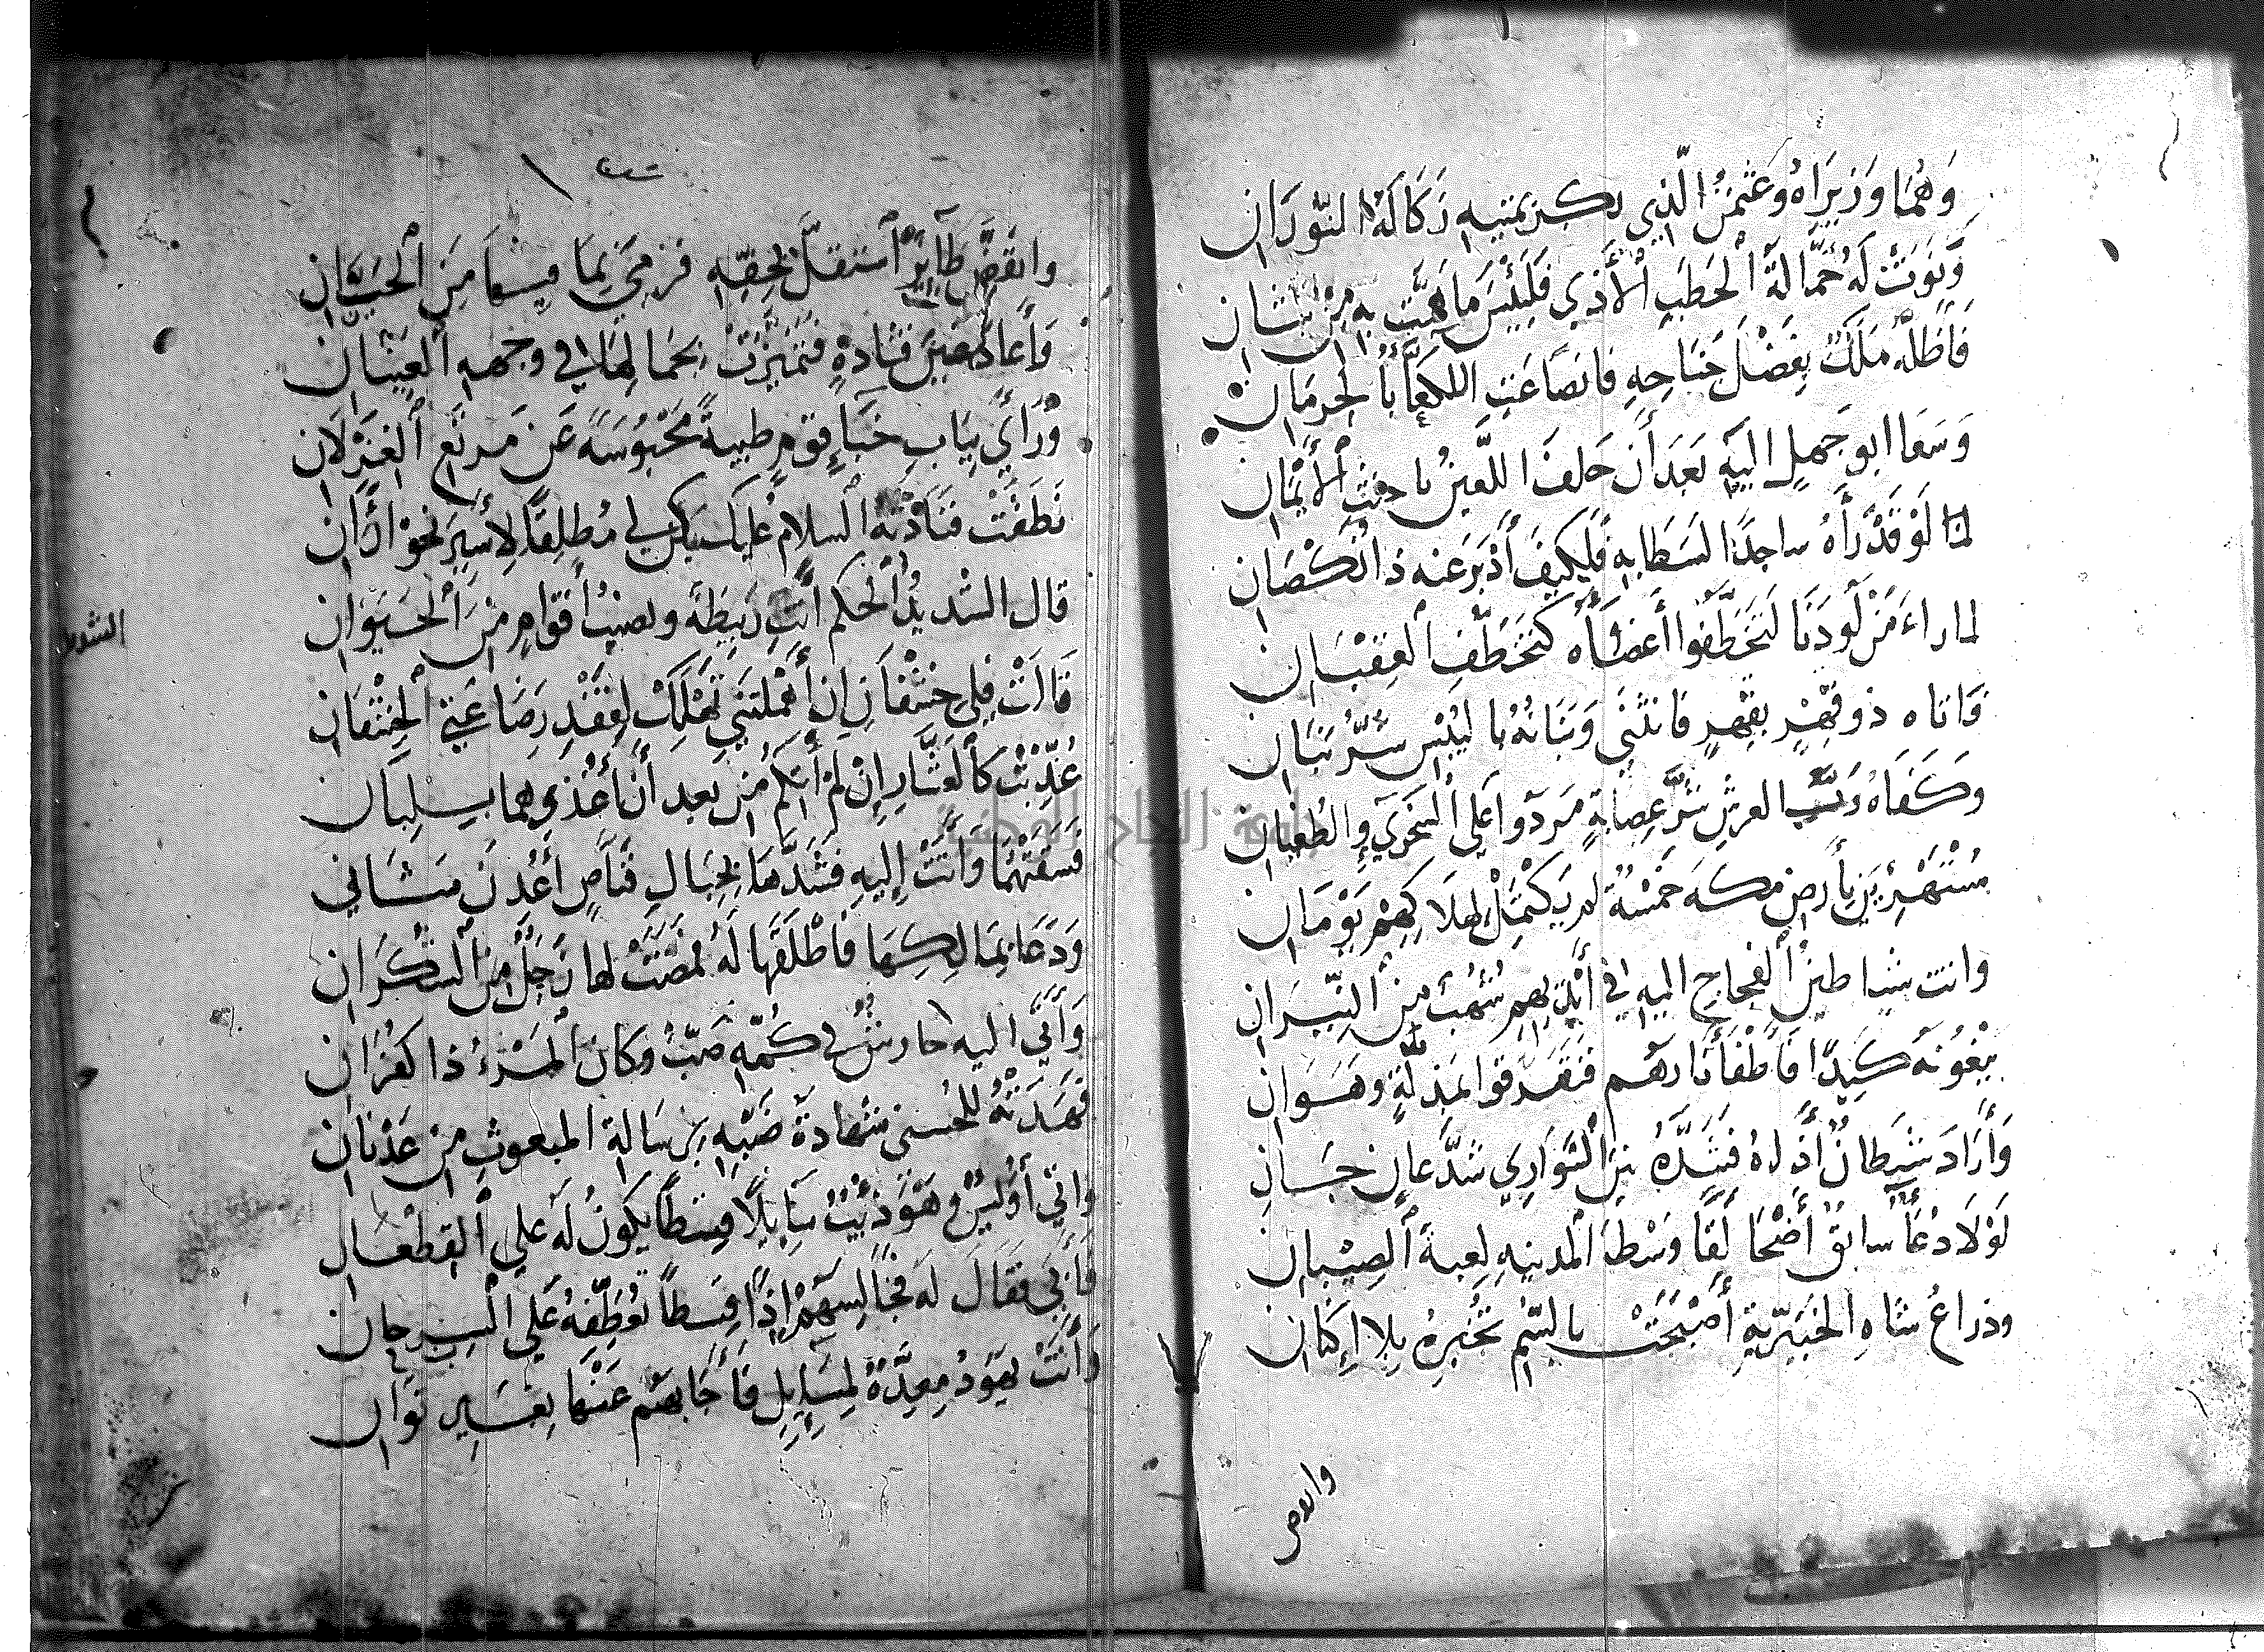 وَهُمَا وَزِيرَاهُ وَعُثْمَنُ الَّذِي بكريمتيه زَكَا لَهُ النُّورَانِ
وَنَوَتْ لَهُ حَمَّالَةُ الْحَطَبِ الْأَذِي فَلَبِئْسَ مَا هَمَّتْ بِهِ مِنْ شَانِ
فَأَظَلَّهُ مَلَكٌ بِفَضْلِ جَنَاحِهِ فانصَاعَتِ اللكعَا بالحِرمَانِ
وَسَعَا ابو جَهلٍ اليهِ بَعدَ أَن حَلفَ اللَّعينُ باحنثِ الأَيْمَانِ
لمَا لَوْ قَدْ رَأَهُ ساجدًا لسَطَا بِهِ فَلِكَيْفَ أَدْبَرَ عنه ذا نُكْصَانِ
لما راءَ مَنْ لَوْ دَنَا لَتَخَطَّفُوا أَعضَاءَه كَتَخَطُّفِ العِقْبَانِ
وَاتاه ذو فِهْرٍ بِفِهرٍ فانثَنَى وَبَنَانُهُ بِاليُبْسِ شَرُّ بَنَانِ
وَكَفَاهُ رَبُّ العرشِ شَرَّ عِصَابَةٍ مَرَدُوا عَلَى السُّخْرِيِّ وَالطُّغيانِ
مُسْتَهْزِئِينَ بِأَرضِ مكةَ خَمْسَةٌ لم يَكْتمِلْ لِهَلَاكِهِمْ يَوْمَانِ
واتت شياطينُ الفجاجِ اليهِ في أَيْدِيهِمِ شُهُبٌ مِنَ النِّيرَانِ
يَبْغُونَهُ كَيدًا فَأَطْفَأَ نَارَهُم فَتَفَرَّقُوا بمَذَلَّةٍ وهَوَانِ
وَأَرَادَ شَيطَانٌ أَذَاهُ فَشَدَّهُ بَينَ السَّوَارِي شَدَّ عانٍ جَانِ
لَوْلَا دُعَاً سابقٌ أَضْحَا لَقَا وَسْطَ المدينهِ لعبةَ الصِبْيانِ
وذراعُ شاهِ الخَيْبَريّةِ أَصْبَحَتْ بالسُّمِ تخُبِرهُ بِلا إِكنَانِ
وانقَضَّ طَائِرٌ استقلَّ بِخِفِّهِ فرَمَى بِمَا فِيهَا مِنَ الْحَيَوَانِ
وَأَعادَ عَينَ قتادةٍ فتَميَّزَتْ بجمَالِهَا في وجههِ العَيْنَانِ
وَرَأَى بِبَابِ خِبَاءِ قومٍ ظبيةً مَحْبُوسَةً عَن مَرتَعِ الغِزْلَانِ
نَطَقَتْ فنَادَتهُ السلامُ عليك كن لي مُطلِقًا لِأَسِيرَ نحْوَ
قال الشديدُ الحكم أَنتِ رَبِيطَةٌ ونصيبُ أَقوامٍ مِنَ الْحَيَوَانِ
قَالَتْ فلِي خِشْفَانِ إِن أَهْمَلتَنِي تَهْلِك لِفَقْدِ رَضَاعَتِي الخِشْفَانِ
عُذِّبْتُ كَالعَشَّارِ إِنْ لَمْ أَتِكُم مِن بعد أن أَغْذُوهما بِلِبَانِ
فسَقَتْهُمَا وَأَتَتْ إِليهِ فشَدَّهَا بِحِبَالِ قنَّاصٍ أَعُدْنَ مَثَانِي
وَدَعَا بِمَالِكِهَا فأَطْلَقَهَا لَهُ فمضَتْ لها زَجَلٌ مِنَ الشُّكْرَانِ
وَأَتَى اليه حارشٌ في كُمِّهِ ضَبٌّ وكانَ المَرْءُ ذا كُفرَانِ
فهَدَتْهُ للحُسنى شهَادةُ ضَبِّهِ برِسَالةِ المبعوثِ مِن عَدْنَانِ
وَاتَى أُوَيْسٌ وهْوَ ذِئْبٌ سَايِلًا قِسْطًا يكُونُ لَهُ عَلَى القُطْعَانِ
فَأَبَى فقَالَ لَهَ فخَالِسهُمْ إِذًا قِسطاً نُوَظِّفهُ عَلَى السِرحانِ
وَأَتَتْ يَهودُ مُعِدَّةً لمسَايِلٍ فَأَجَابهُم عَنْهَا بِغَيرِ تَوَانِ